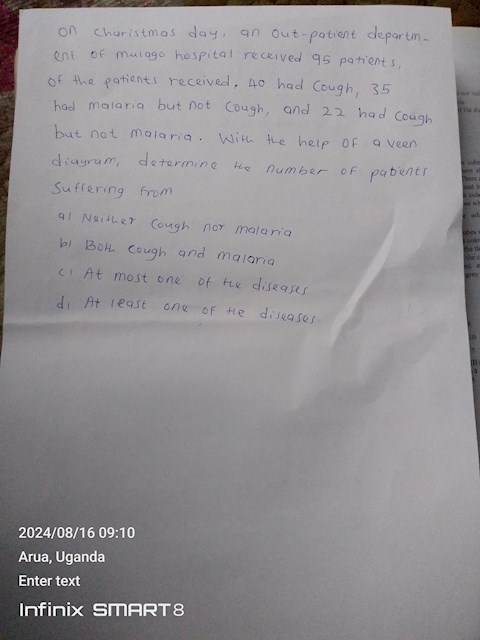 On Charistmas day, an Out-patient departm-
ent of mulago hospital received 95 patients,
of the patients received. 40 had Cough, 35
had malaria but not Cough, and 22 had Cough
but not malaria. With the help of a veen
diagram, determine the number of patients
Suffering from
a) Neither Cough nor malaria
b) Both cough and malaria
c) At most one of the diseases
d) At least one of the diseases.
2024/08/16 09:10
Arua, Uganda
Enter text
Infinix SMART 8